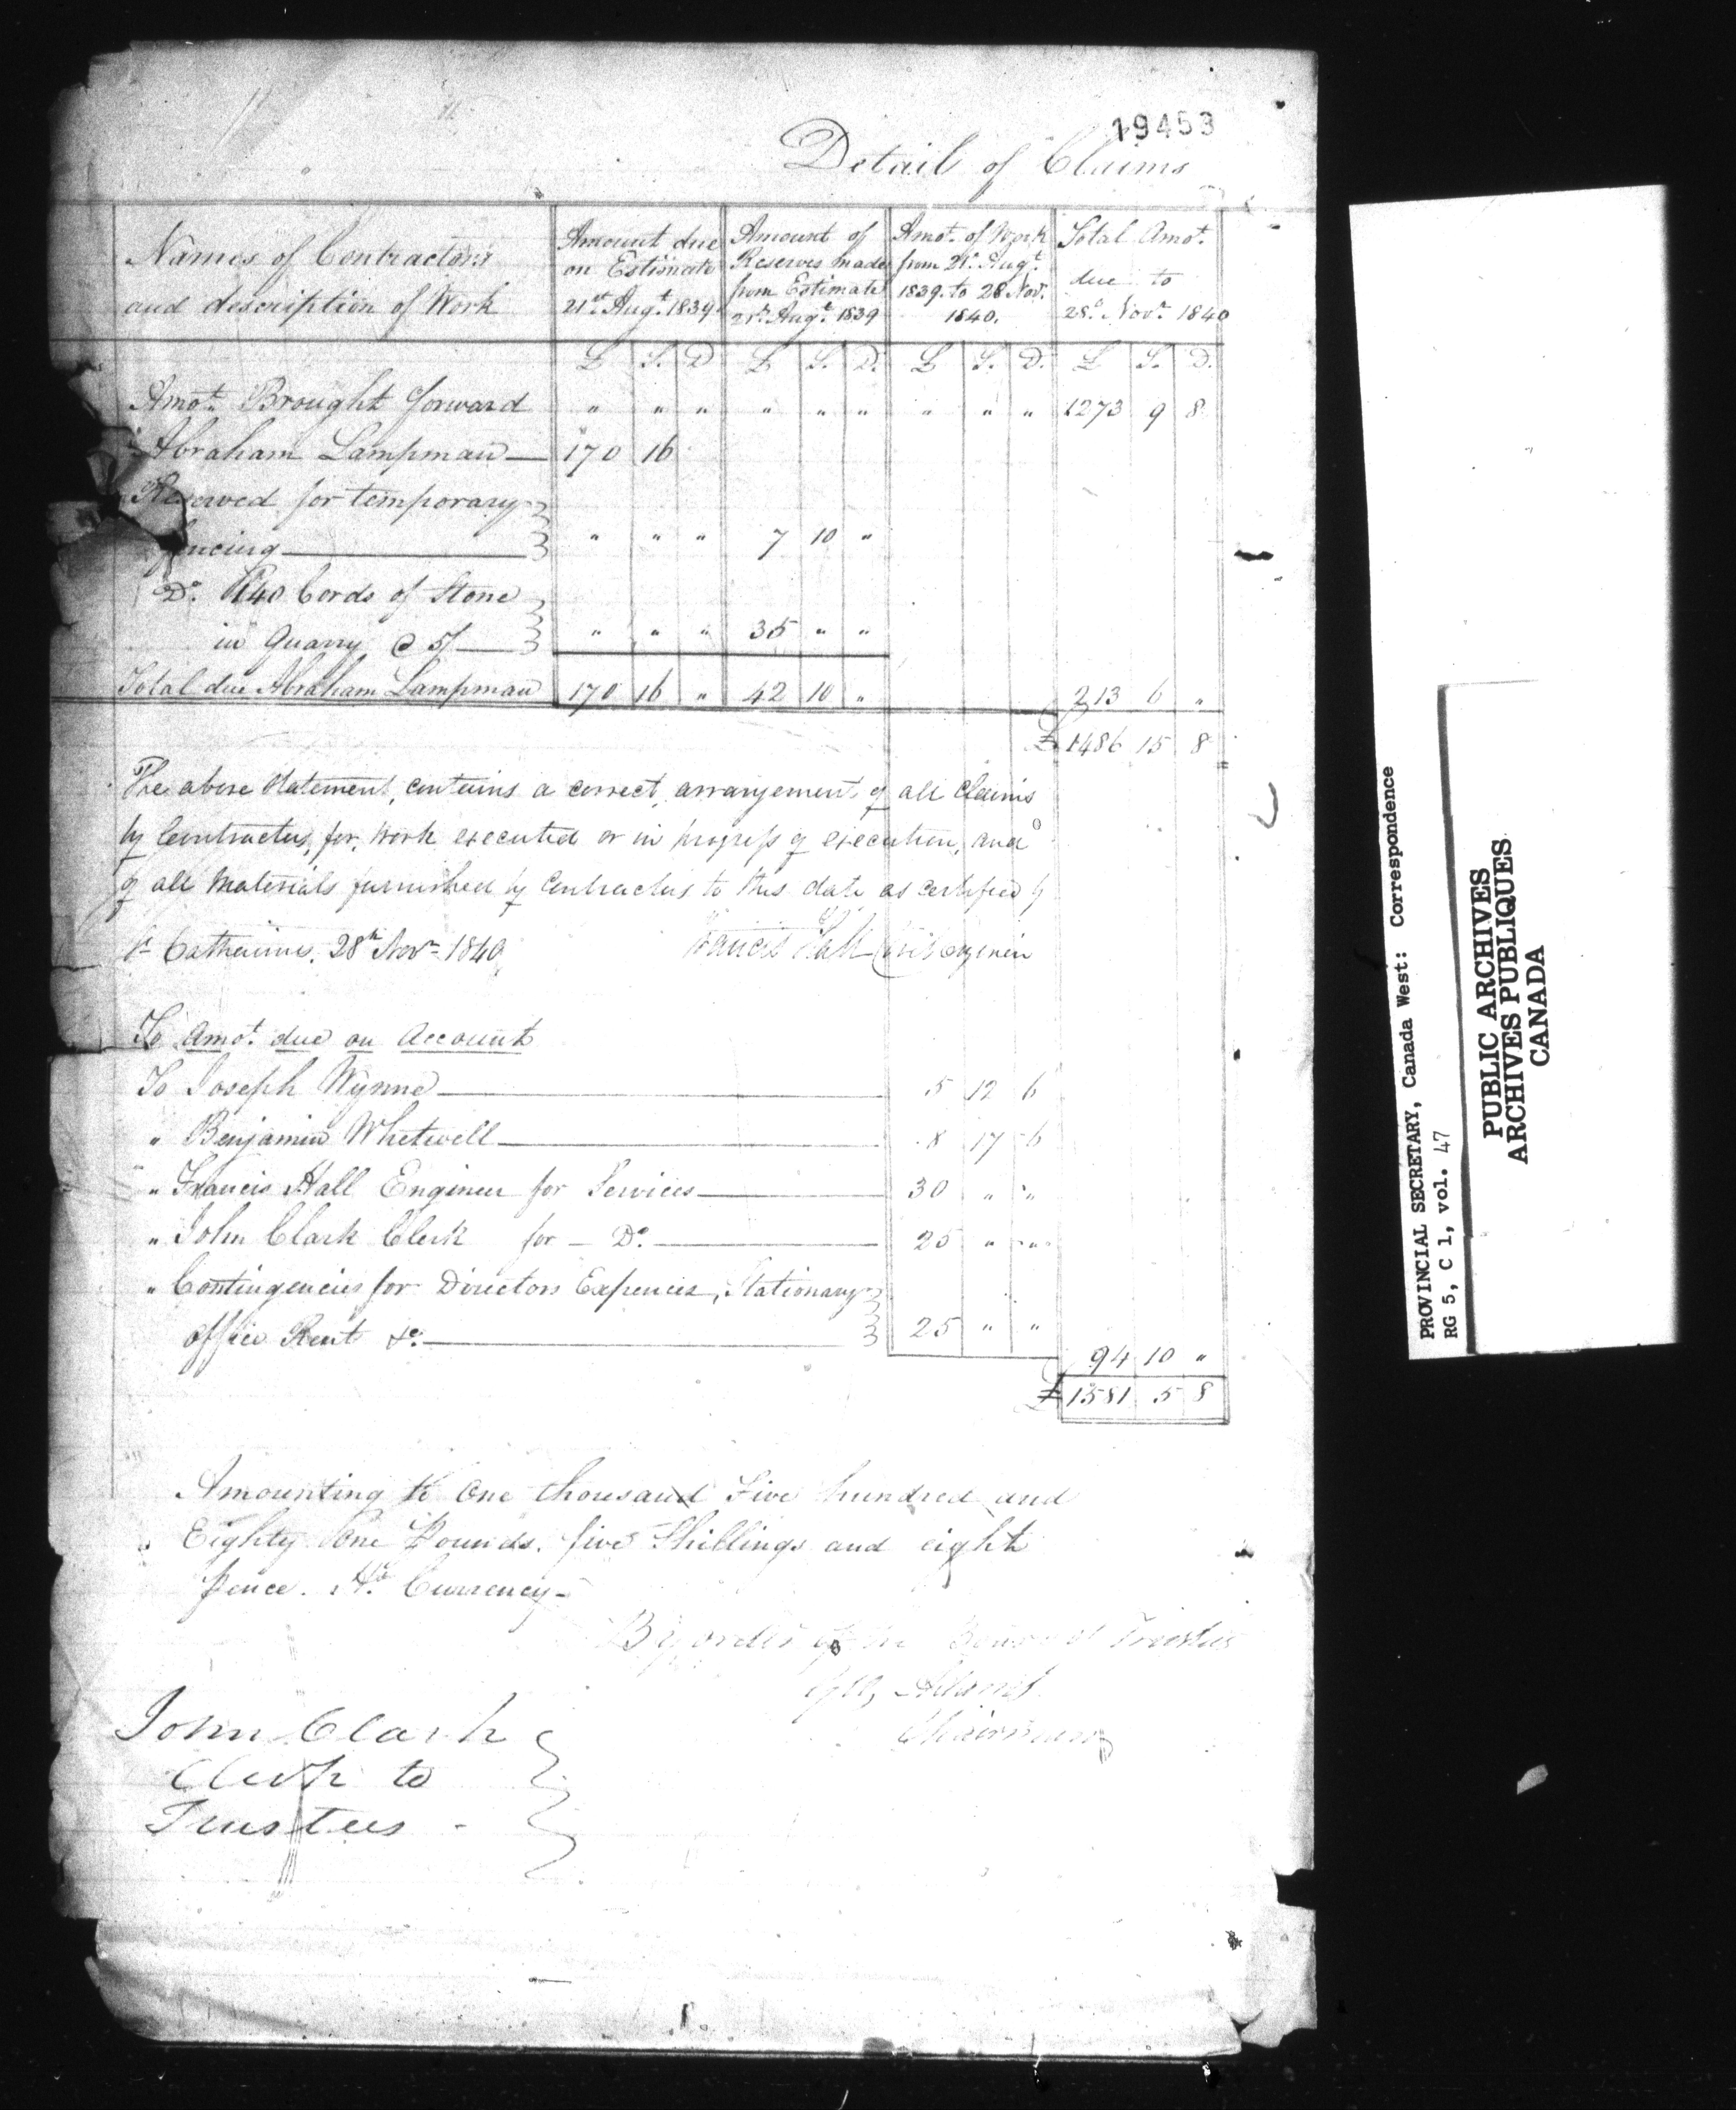 19453
Detail of Claims
Names of Contractors and description of Work | Amount due on Estimate 21st Augt. 1839 | Amount of Reserves made from Estimate 21st Augt. 1839 | Amot. of Work from 21st Augt. 1839 to 28 Nov. 1840. | Total Amot. due to 28th Novr. 1840
£ S. D | £ S. D. | £ S. D. | £ S. D.
Amot. Brought forward " " " | " " " | " " " | 1273 9 8
Abraham Lampman — 170 16
Reserved for temporary
fencing " " " | 7 10 "
Do. 140 Cords of Stone
in Quarry @ 5/ " " " | 35 " "
Total due Abraham Lampman 170 16 " | 42 10 " | 213 6 "
£ 1486 15 8
The above Statement, contains a correct, arrangement of all claims
by Contractors, for, work executed or in progress of execution, and
of all Materials furnished by Contractors to this date as certified by
St Catharines. 28th Novr. 1840 Francis Hall Civil Engineer
To Amot. due on Account
To Joseph Wynne 5 12 6
" Benjamin Whetwell 8 17 6
" Francis Hall Engineer for Services 30 " "
" John Clark Clerk for — Do. 25 " "
" Contingencies for Directors Expences, Stationary
office Rent &c. 25 " "
94 10 "
£ 1581 5 8
Amounting to One thousand Five hundred and
Eighty One Pounds. five Shillings and eight
pence. Hx. Currency —
By order of the Board of Trustees
Geo, Adams
Chairman
John Clark
Clerk to
Trustees -
PROVINCIAL SECRETARY, Canada West: Correspondence
RG 5, C 1, vol. 47
PUBLIC ARCHIVES
ARCHIVES PUBLIQUES
CANADA